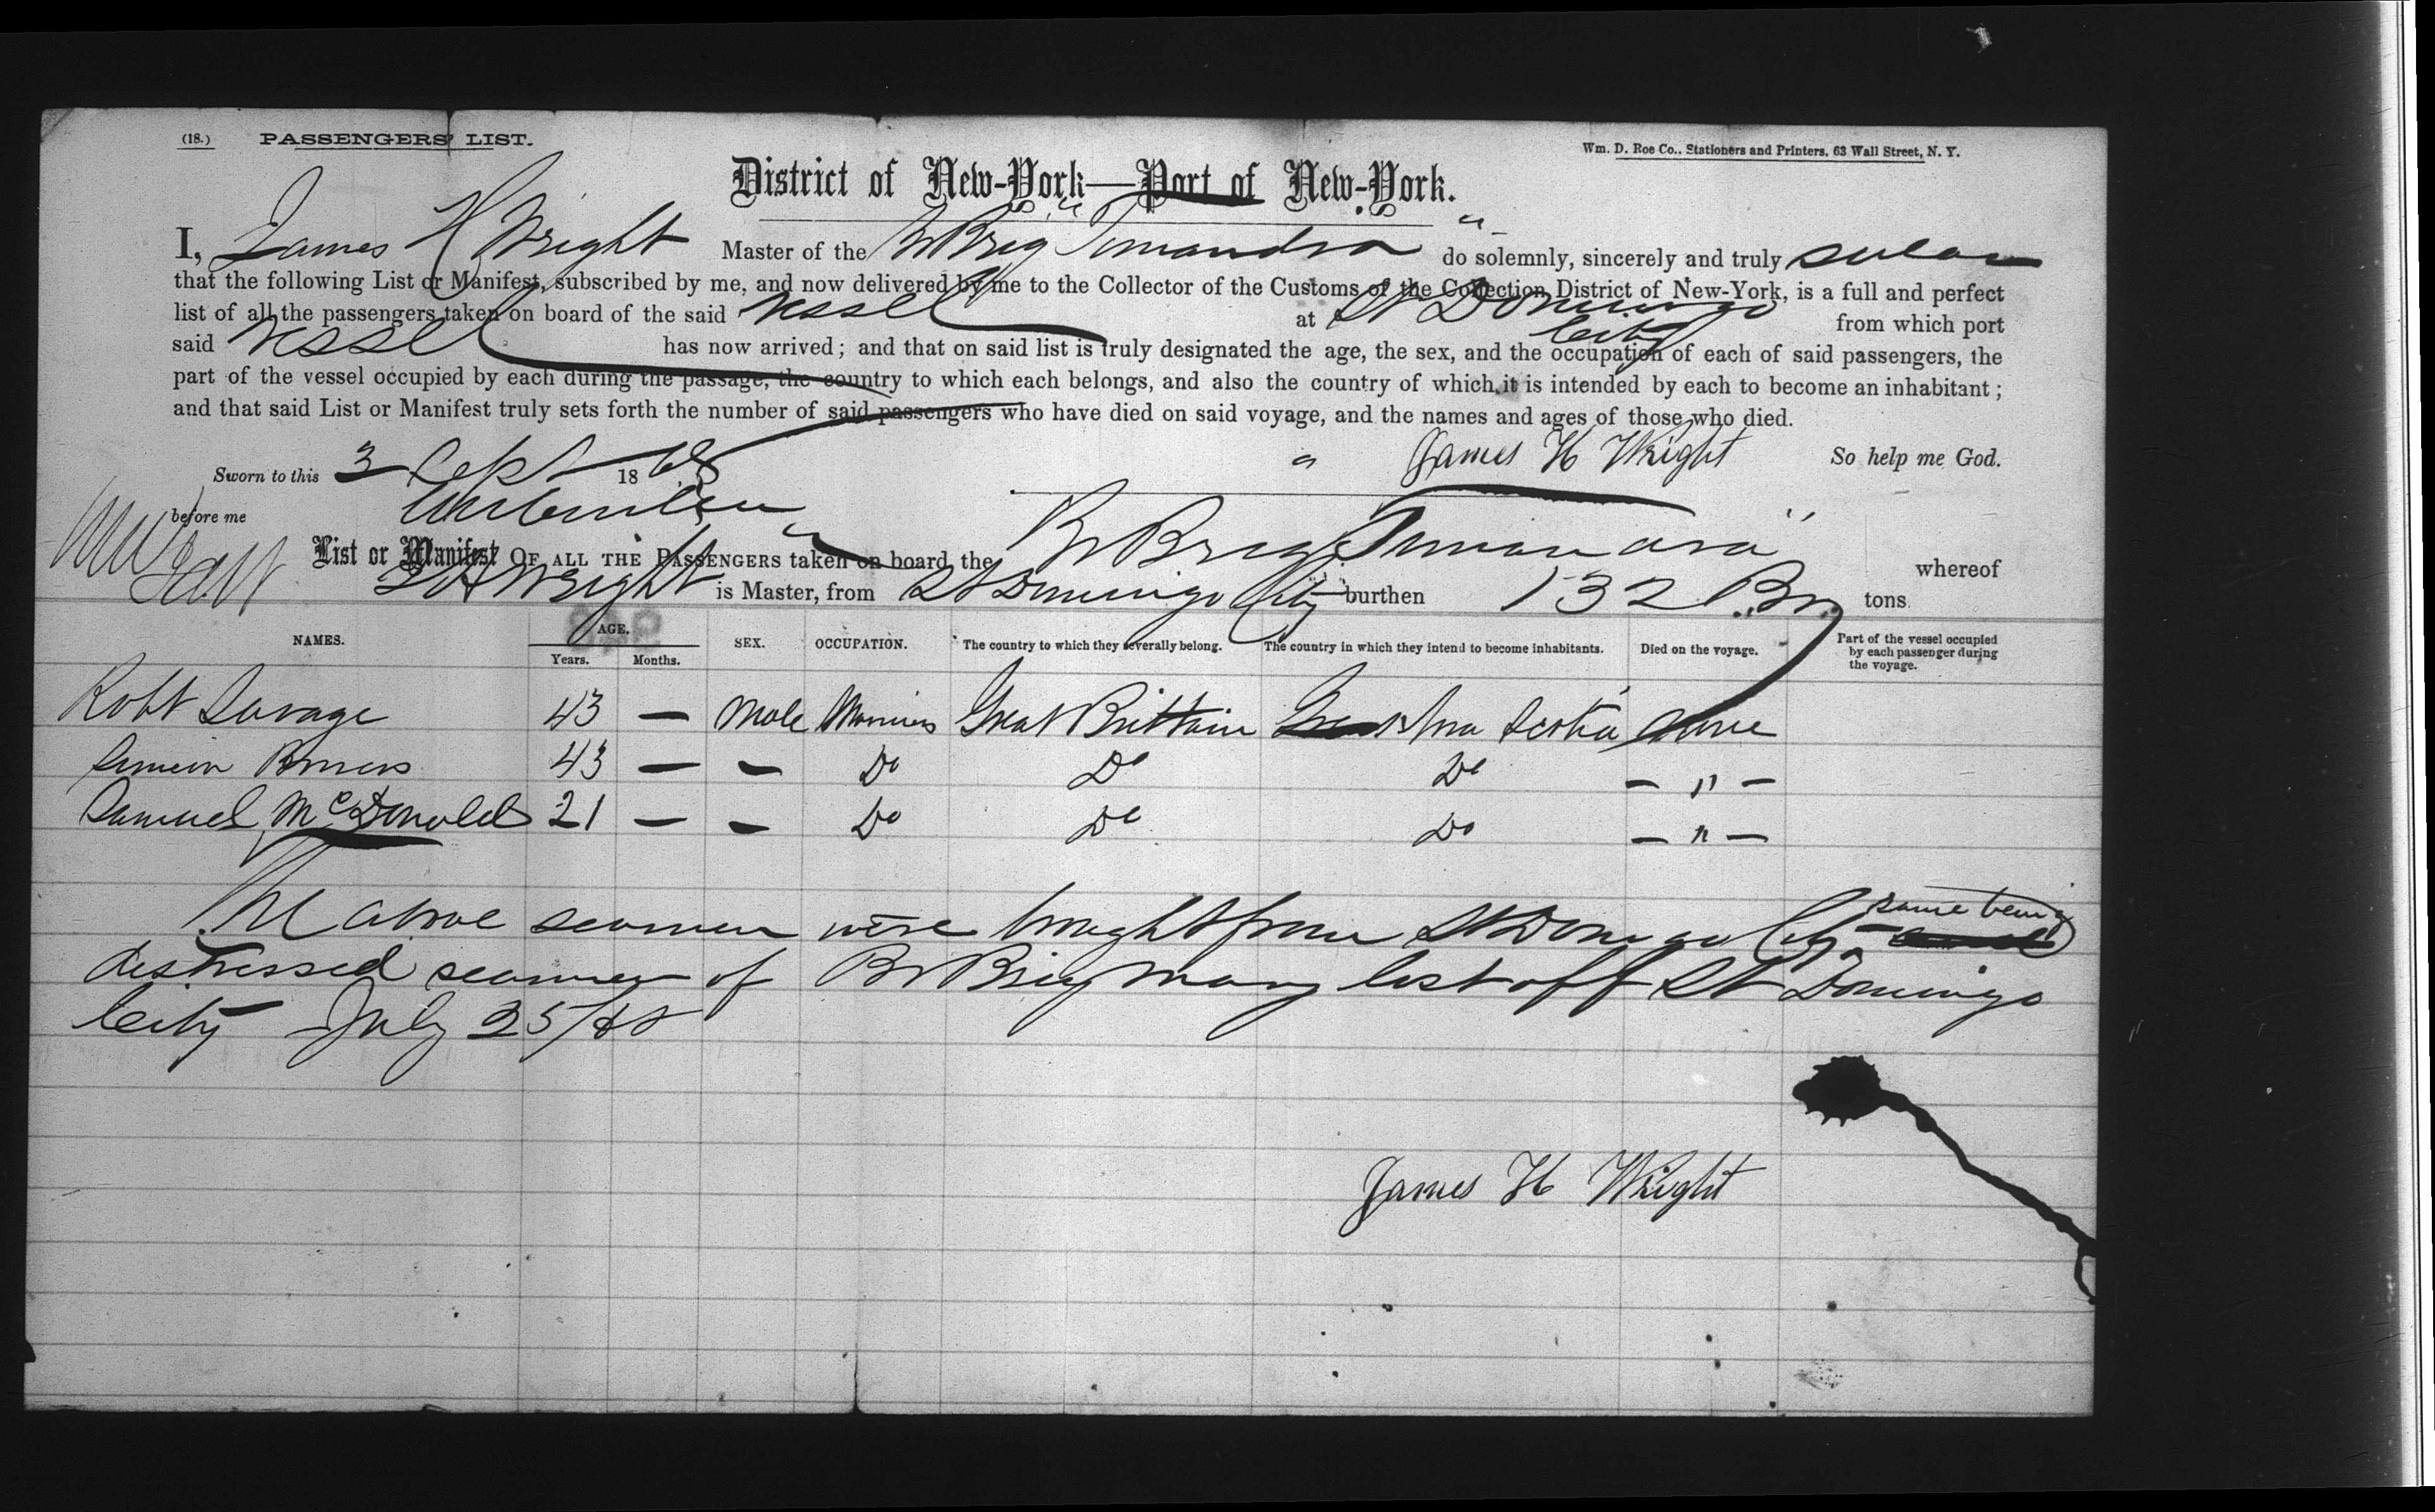 (18.) PASSENGERS' LIST.
Wm. D. Roe Co., Stationers and Printers, 63 Wall Street, N. Y.
District of New-York—Port of New-York.
I, James H Wright Master of the Br Brig "Timandra" do solemnly, sincerely and truly swear
that the following List or Manifest, subscribed by me, and now delivered by me to the Collector of the Customs of the Collection District of New-York, is a full and perfect
list of all the passengers taken on board of the said Vessel at St Domingo City from which port
said Vessel has now arrived; and that on said list is truly designated the age, the sex, and the occupation of each of said passengers, the
part of the vessel occupied by each during the passage, the country to which each belongs, and also the country of which it is intended by each to become an inhabitant;
and that said List or Manifest truly sets forth the number of said passengers who have died on said voyage, and the names and ages of those who died.
Sworn to this 3 Sept 18 James H Wright So help me God.
before me
List or Manifest OF ALL THE PASSENGERS taken on board the Br Brig "Timandra" whereof
J H Wright is Master, from St Domingo City burthen 132 tons
NAMES. AGE. Years. Months. SEX. OCCUPATION. The country to which they severally belong. The country in which they intend to become inhabitants. Died on the voyage. Part of the vessel occupied by each passenger during the voyage.
Robt Savage 43 — Male Great Brittain Scotia None
43 — — Do Do Do — " —
Samuel McDonald 21 — — Do Do Do — " —
The above seamen were brought from St Domingo City same being
distressed seamen of Br Brig Mary lost off St Domingo
City July 25/
James H Wright